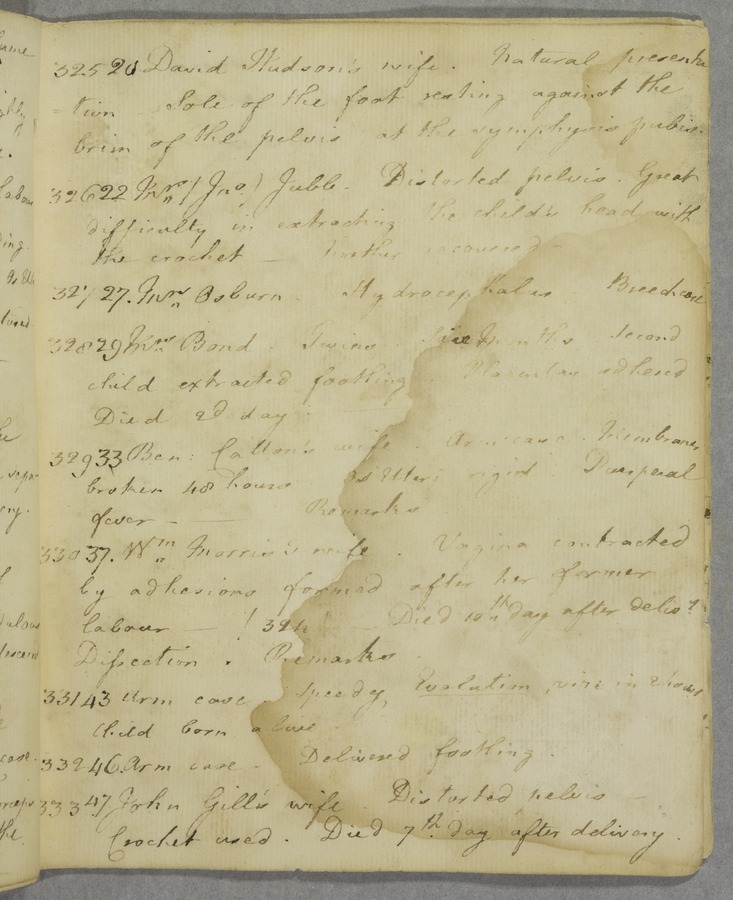 325 20 David Hudson's wife. Natural presenta
= tion Sole of the foot resting against the
brim of the pelvis at the symphysis pubis.
326 22 Mrs (Jno.) Jubb. Distorted pelvis. Great
difficulty in extracting the child's head with
the crochet — Mother recovered —
327 27. Mrs Osburn. Hydrocephalus Breech case
328 29 Mrs Bond. Twins Months Second
child extracted footling Placentae adhered
Died 2d day
329 33 Ben: Catton's wife. Arm case. Membranes
broken 48 hours Os Uteri rigid Puerperal
fever — Remarks
330 37. Wm Morris's wife. Vagina contracted
by adhesions formed after her former
labour — ! 324 ! — Died 10th day after delivy
Dissection. Remarks.
331 43 Arm case. Speedy Evolution in 2 hours
Child born alive
332 46 Arm case — Delivered footling.
333 47 John Gill's wife Distorted pelvis —
Crochet used. Died 7th day after delivery.